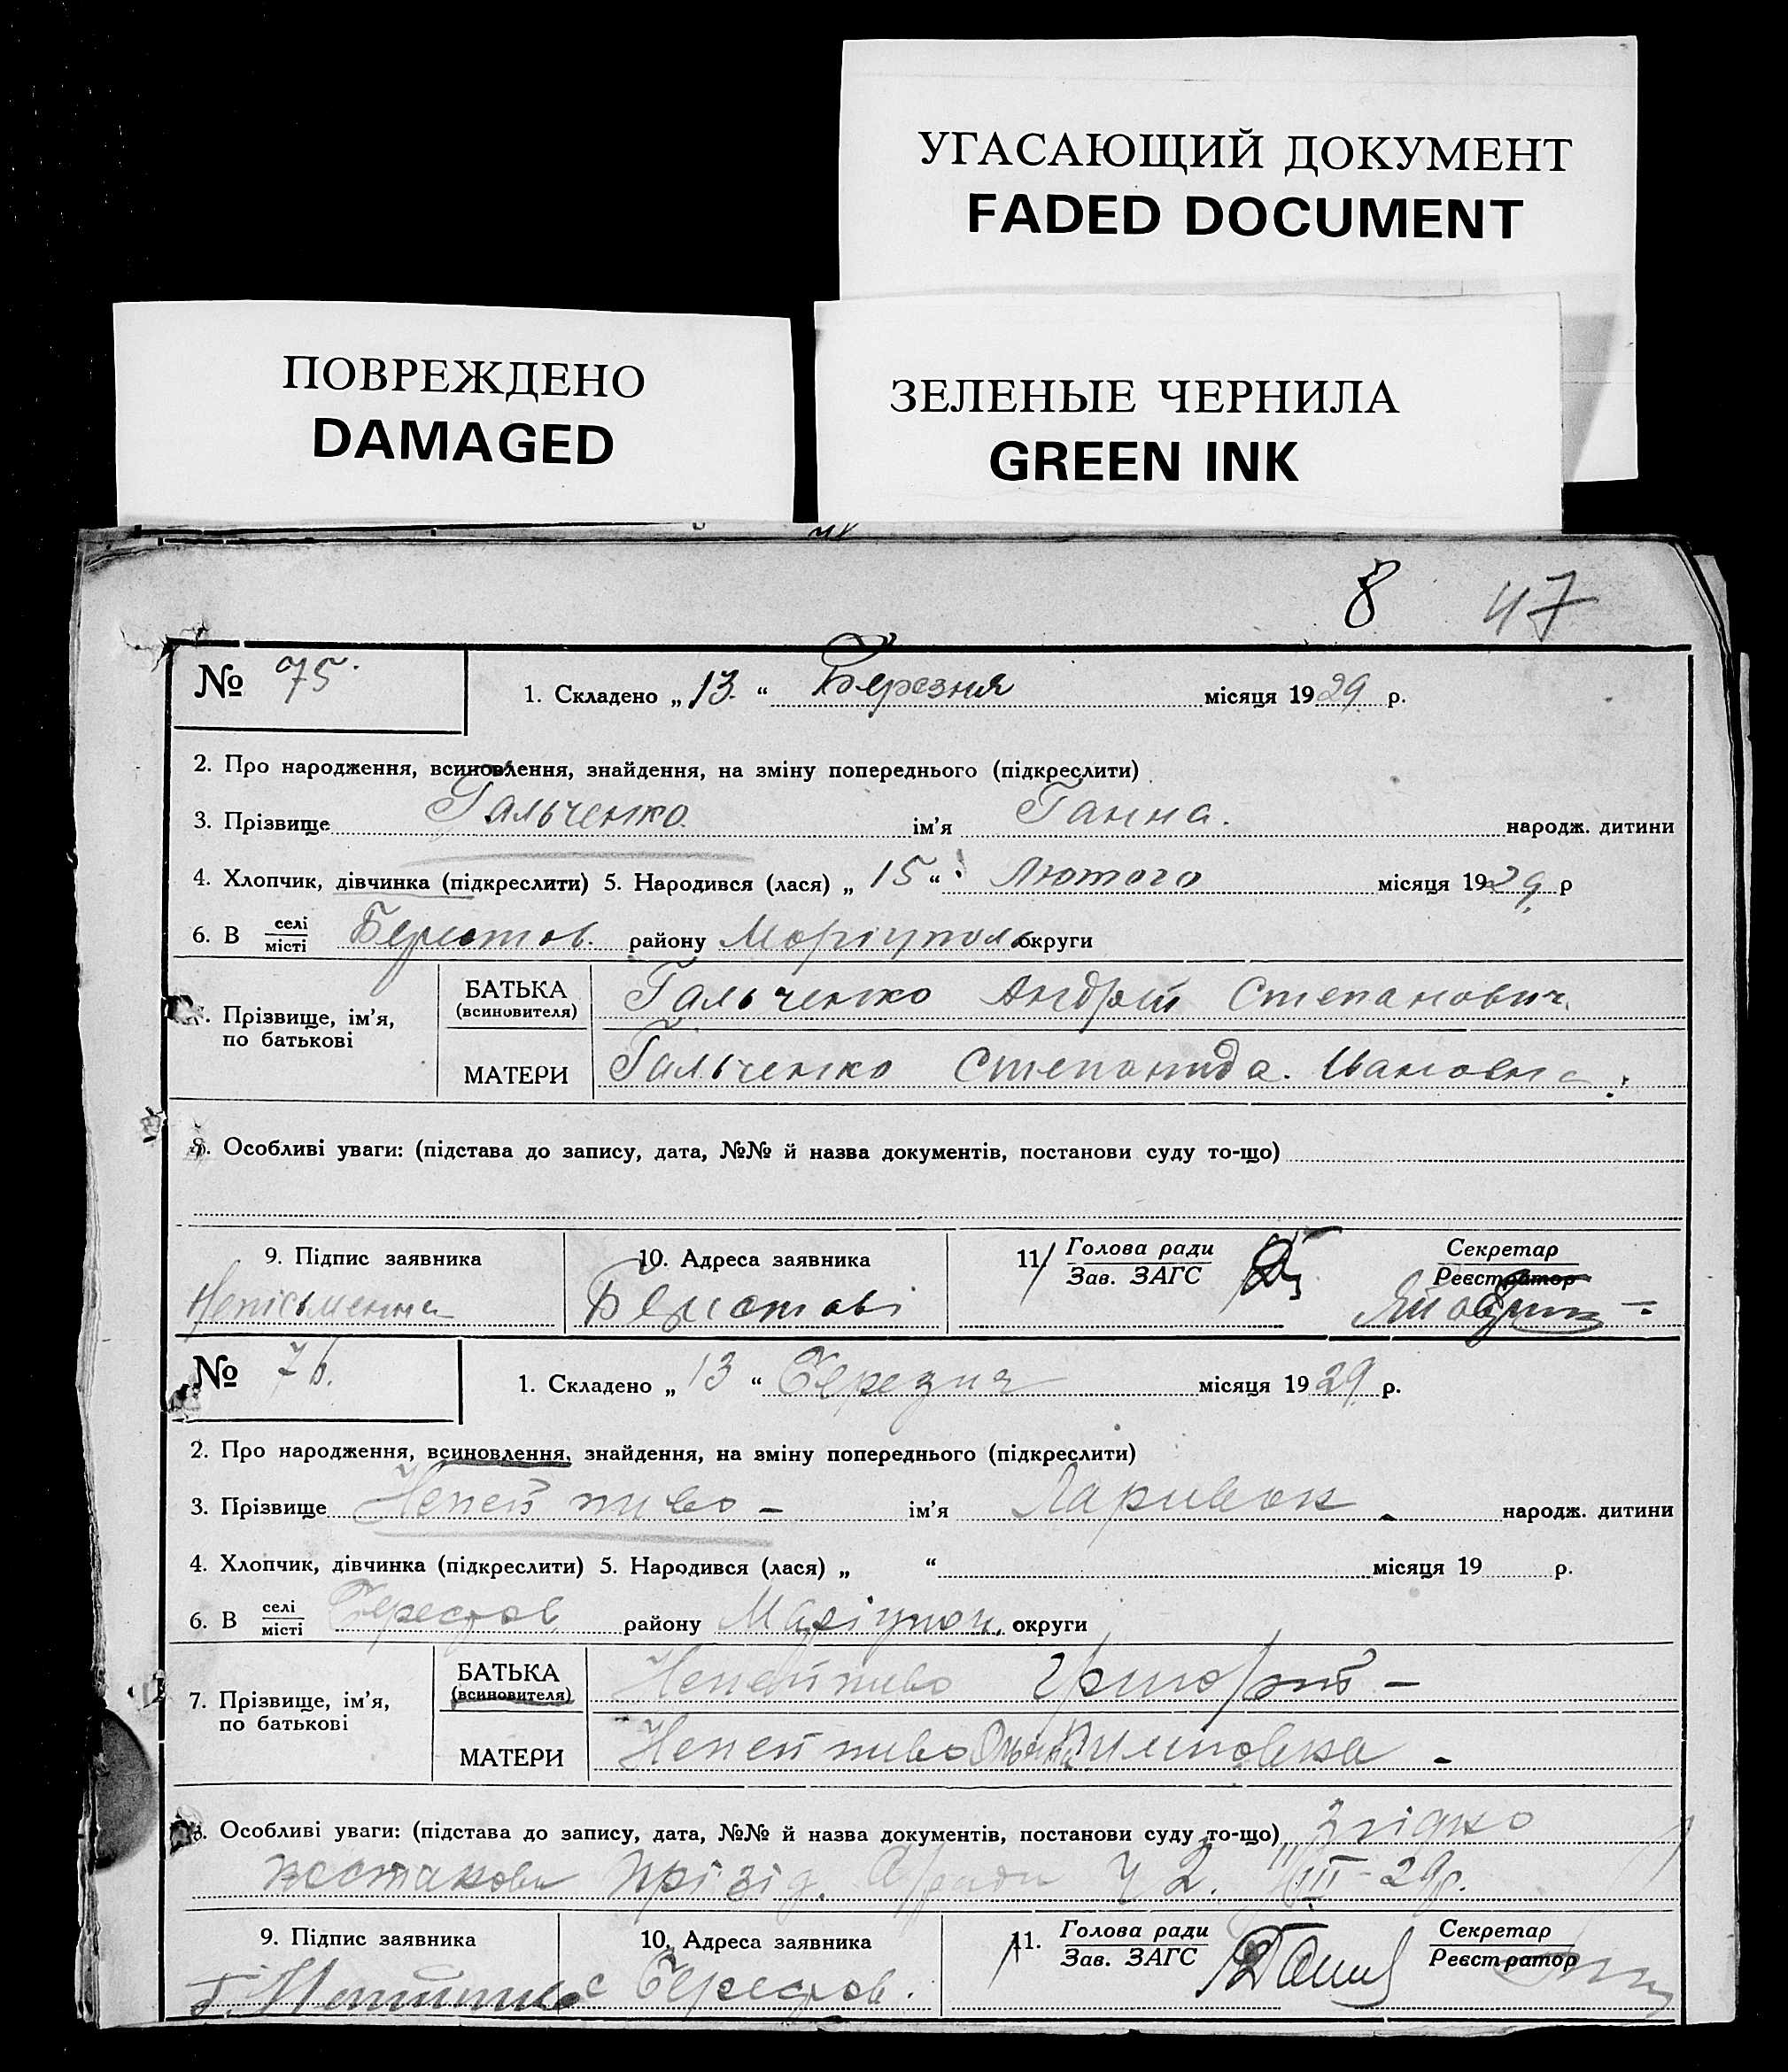 УГАСАЮЩИЙ ДОКУМЕНТ
FADED DOCUMENT
ПОВРЕЖДЕНО
DAMAGED
ЗЕЛЕНЫЕ ЧЕРНИЛА
GREEN INK
8 47
№ 75.
1. Складено „13.“ Березня місяця 1929 р.
2. Про народження, всиновлення, знайдення, на зміну попереднього (підкреслити)
3. Прізвище Гальченко ім'я Ганна. народж. дитини
4. Хлопчик, дівчинка (підкреслити) 5. Народився (лася) „15“ Лютого місяця 1929 р
6. В селі місті Берестов. району Моріуполь округи
7. Прізвище, ім'я, по батькові
БАТЬКА (всиновителя) Гальченко Андрій Степанович
МАТЕРИ Гальченко Степанида. Ивановна
8. Особливі уваги: (підстава до запису, дата, №№ й назва документів, постанови суду то-що)
9. Підпис заявника 10. Адреса заявника 11. Голова ради Зав. ЗАГС Секретар Реєстратор
Неписьменна Берестові
№ 76.
1. Складено „13“ Березня місяця 1929 р.
2. Про народження, всиновлення, знайдення, на зміну попереднього (підкреслити)
3. Прізвище Непейпиво - ім'я Ларивон народж. дитини
4. Хлопчик, дівчинка (підкреслити) 5. Народився (лася) „ “ місяця 19 р.
6. В селі місті Берестов району Маріупол. округи
7. Прізвище, ім'я, по батькові
БАТЬКА (всиновителя) Непейпиво Григорий -
МАТЕРИ Непейпиво
8. Особливі уваги: (підстава до запису, дата, №№ й назва документів, постанови суду то-що) Згідно
постанови Прізід. Ч 2. III 29р.
9. Підпис заявника 10. Адреса заявника 11. Голова ради Зав. ЗАГС Секретар Реєстратор
с Берестов.